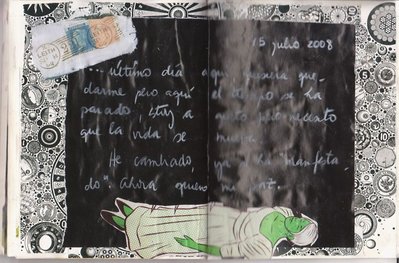 15 julio 2008
... último día aquí quisiera que-
darme pero aquí el tiempo se ha
parado, estoy a gusto pero necesito
que la vida se mueva.
He cambiado, ya "manifesta
do". Ahora quiero paz.